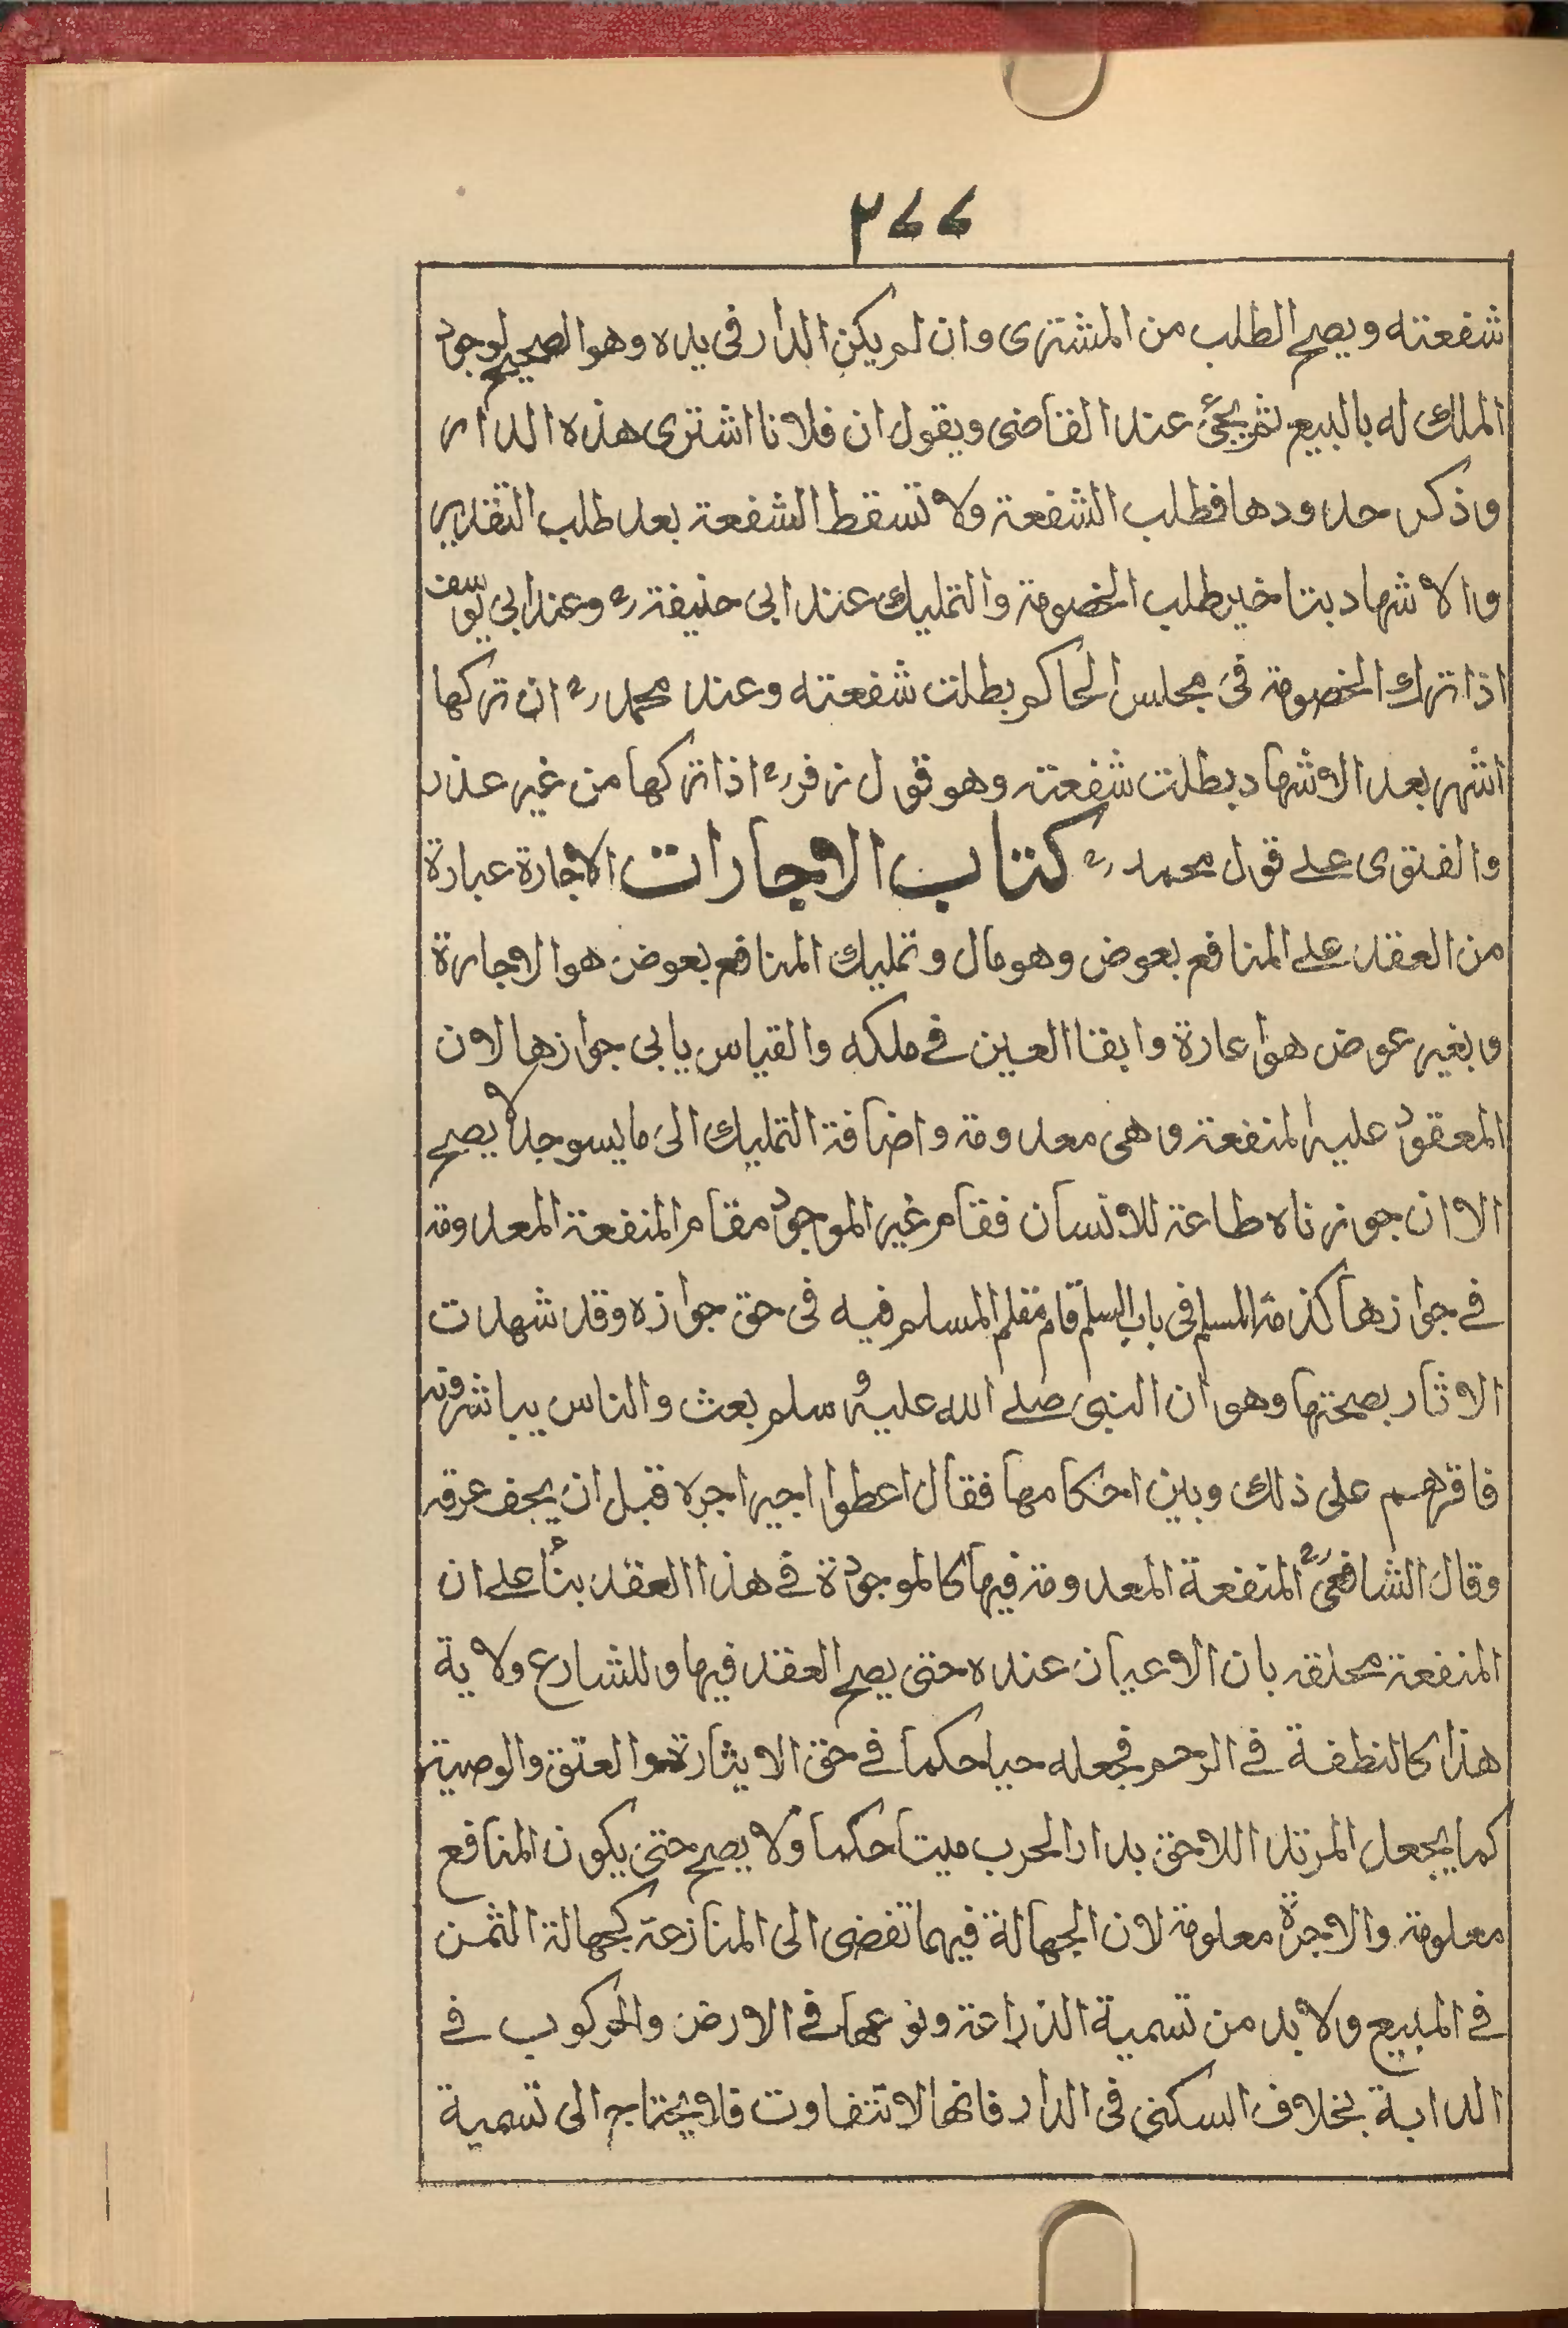 ٢٧٧
شفعته ويصح الطلب من المشترى وان لم يكن الدار فى يده وهو الصحيح لوجود
الملك له بالبيع ثم يجئ عند القاضى ويقول ان فلانا اشترى هذه الدار
وذكر حدودها فطلب الشفعة ولا تسقط الشفعة بعد طلب التقدير
والاشهاد بتاخير طلب الخصومة والتمليك عند ابى حنيفة رح وعند ابى يوسف
اذا ترك الخصومة فى مجلس الحاكم بطلت شفعته وعند محمد رح ان تركها
اشهر بعد الاشهاد بطلت شفعته وهو قول زفر رح اذا تركها من غير عذر
والفتوى على قول محمد رح كتاب الاجارات الاجارة عبارة
من العقد على المنافع بعوض وهو مال وتمليك المنافع بعوض هو الاجارة
وبغير عوض هو اعارة وابقا العين فى ملكه والقياس يابى جوازها لان
المعقود عليه المنفعة وهى معدومة واضافة التمليك الى ما يسوجد لا يصح
الا ان جوزناه طاعة للانسان فقام غير الموجود مقام المنفعة المعدومة
فى جوازها كذمة المسلم فى باب السلم قام مقام المسلم فيه فى حق جوازه وقد شهدت
الاثار بصحتها وهو ان النبى صلى الله عليه وسلم بعث والناس يباشرونه
فاقرهم على ذلك وبين احكامها فقال اعطوا اجيرا اجره قبل ان يجف عرقه
وقال الشافعى رح المنفعة المعدومة فيها كالموجودة فى هذا العقد بنأ على ان
المنفعة محلقة بان الاعيان عنده حتى يصح العقد فيها وللشارع ولاية
هذا كالنطفة فى الرحم فجعله حيا حكما فى حق الايثارة والعتق والوصية
كما يجعل المرتد اللاحق بدار الحرب ميتا حكما ولا يصح حتى يكون المنافع
معلومة والاجرة معلومة لان الجهالة فيهما تفضى الى المنازعة كجهالة الثمن
فى المبيع ولا بد من تسمية الذراعة ونوعها فى الارض والركوب فى
الدابة بخلاف السكنى فى الدار فانها لا تتفاوت فلا يحتاج الى تسمية